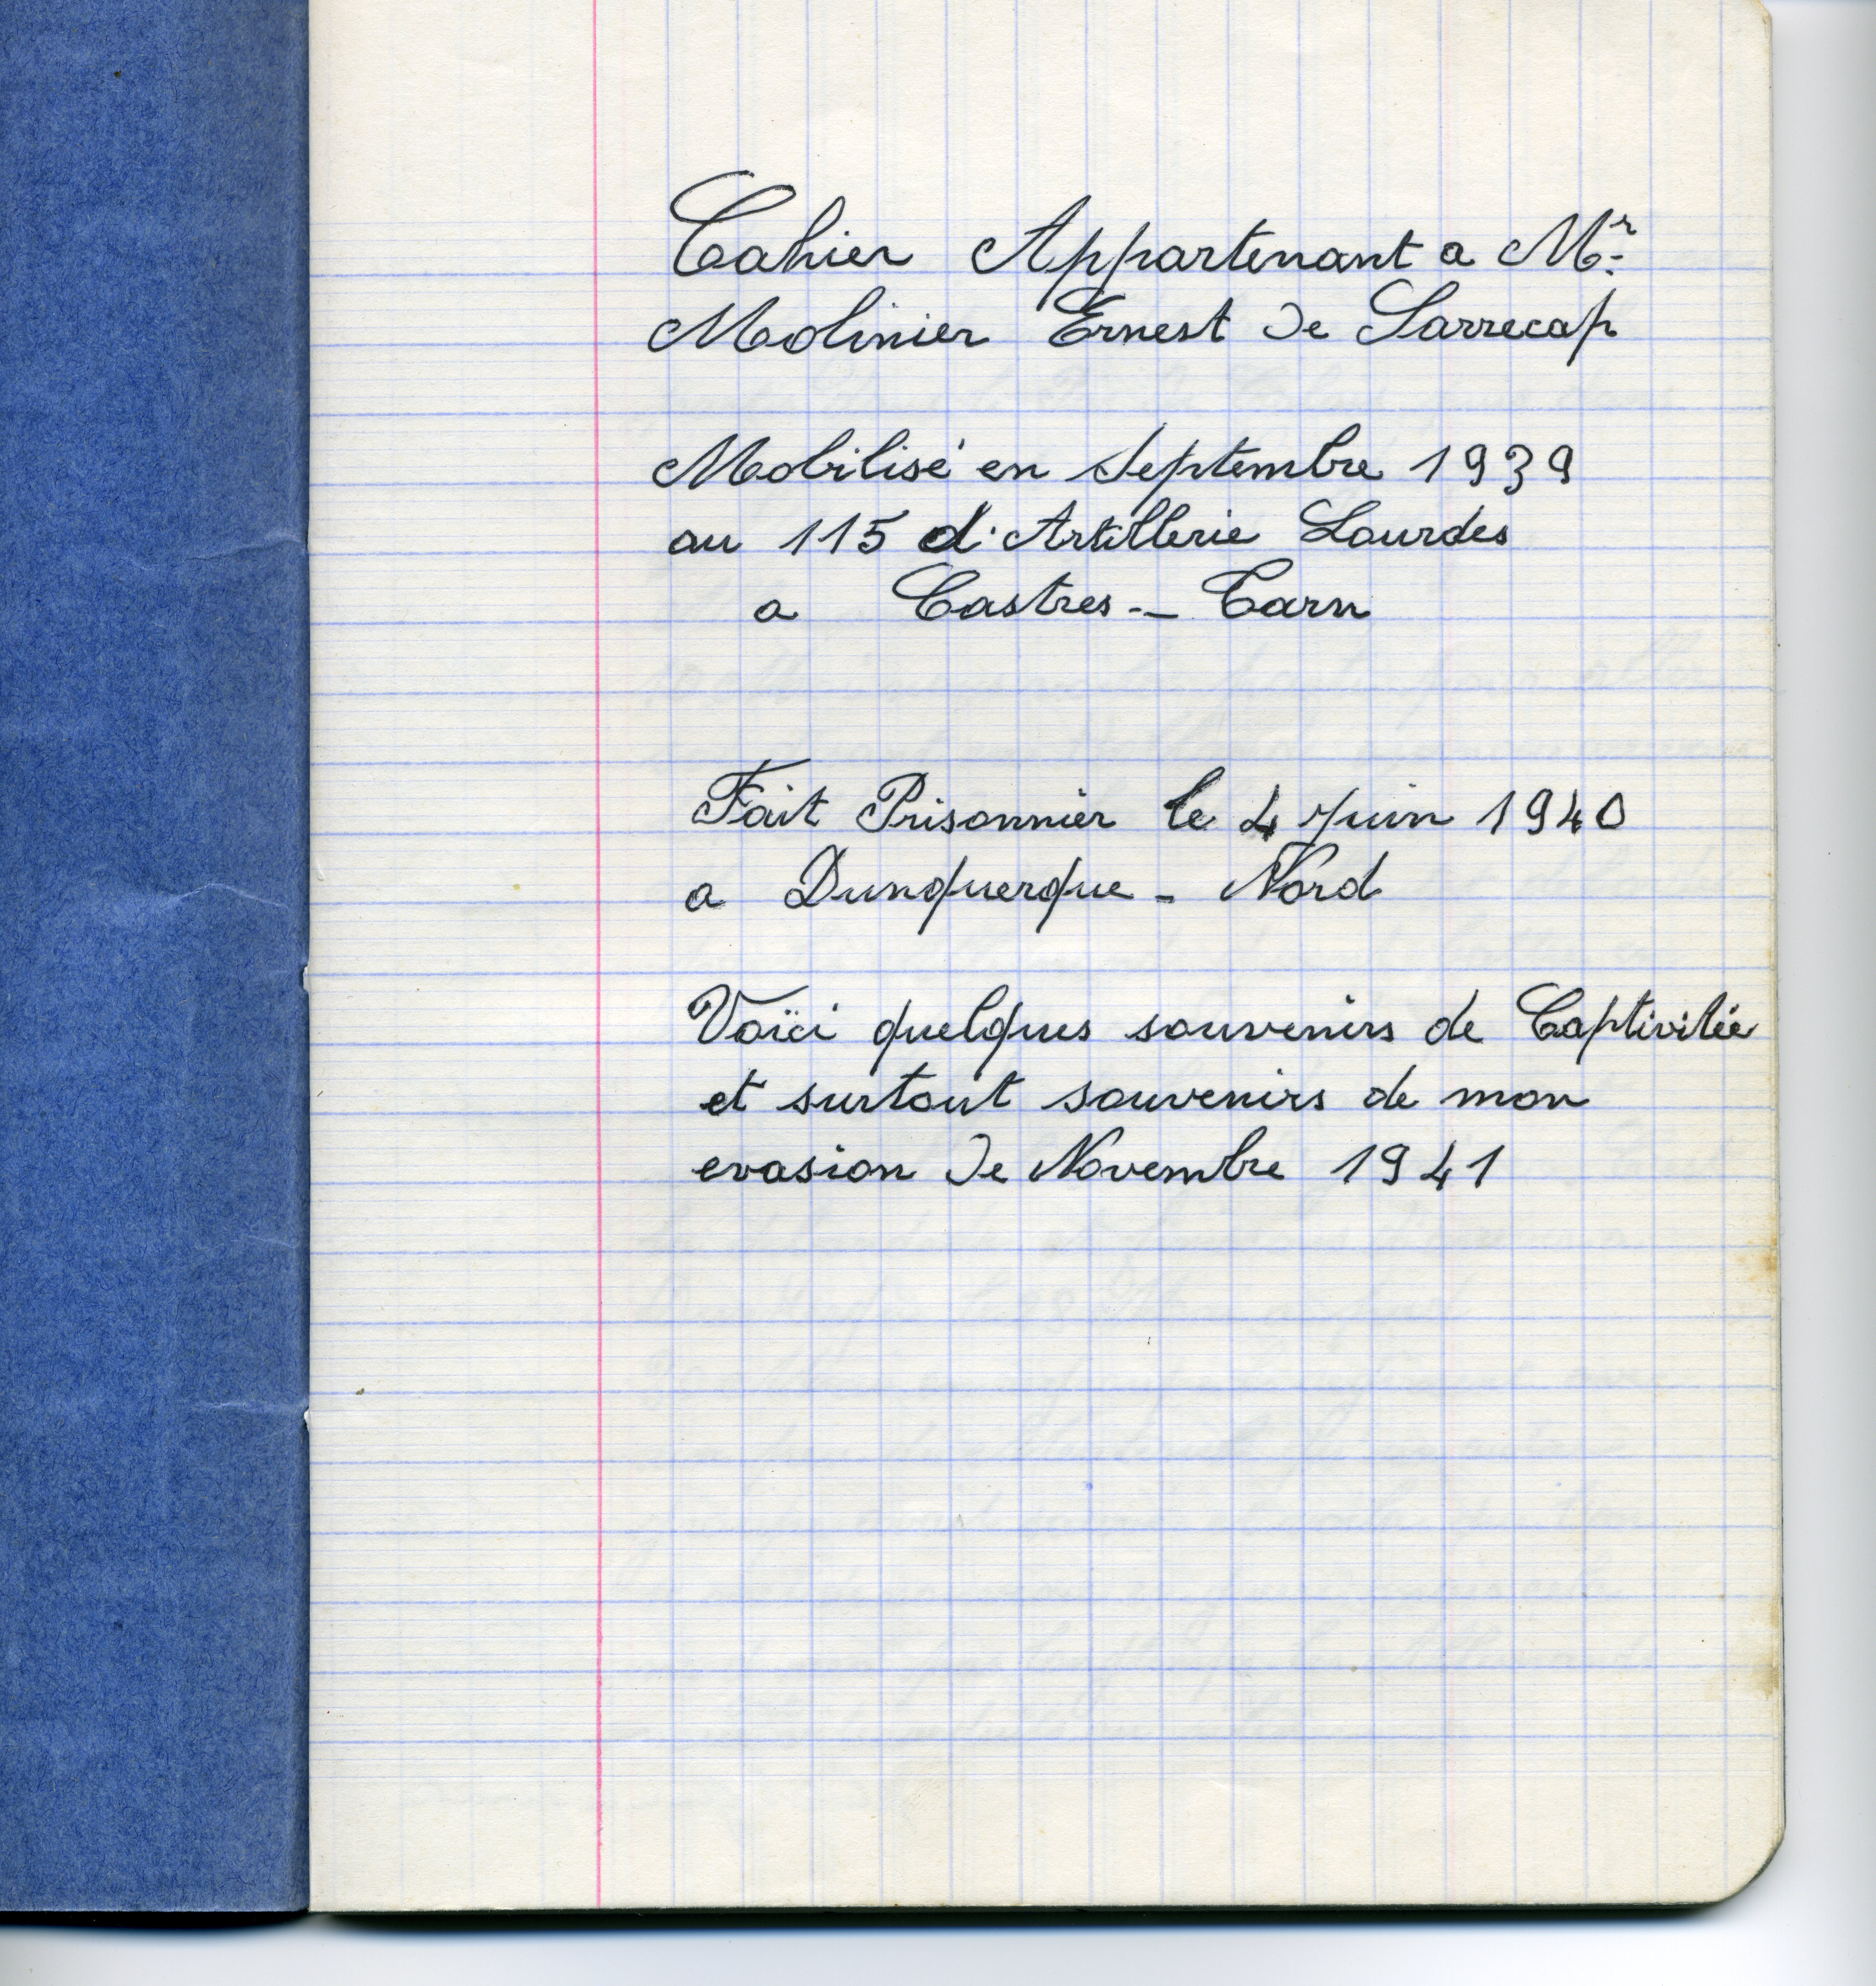 Cahier Appartenant a Mr
Molinier Ernest de Sarrecap
Mobilisé en Septembre 1939
au 115 d'Artillerie Lourdes
a Castres - Tarn
Fait Prisonnier le 4 Juin 1940
a Dunquerque - Nord
Voïci quelques souvenirs de Captivitée
et surtout souvenirs de mon
evasion de Novembre 1941